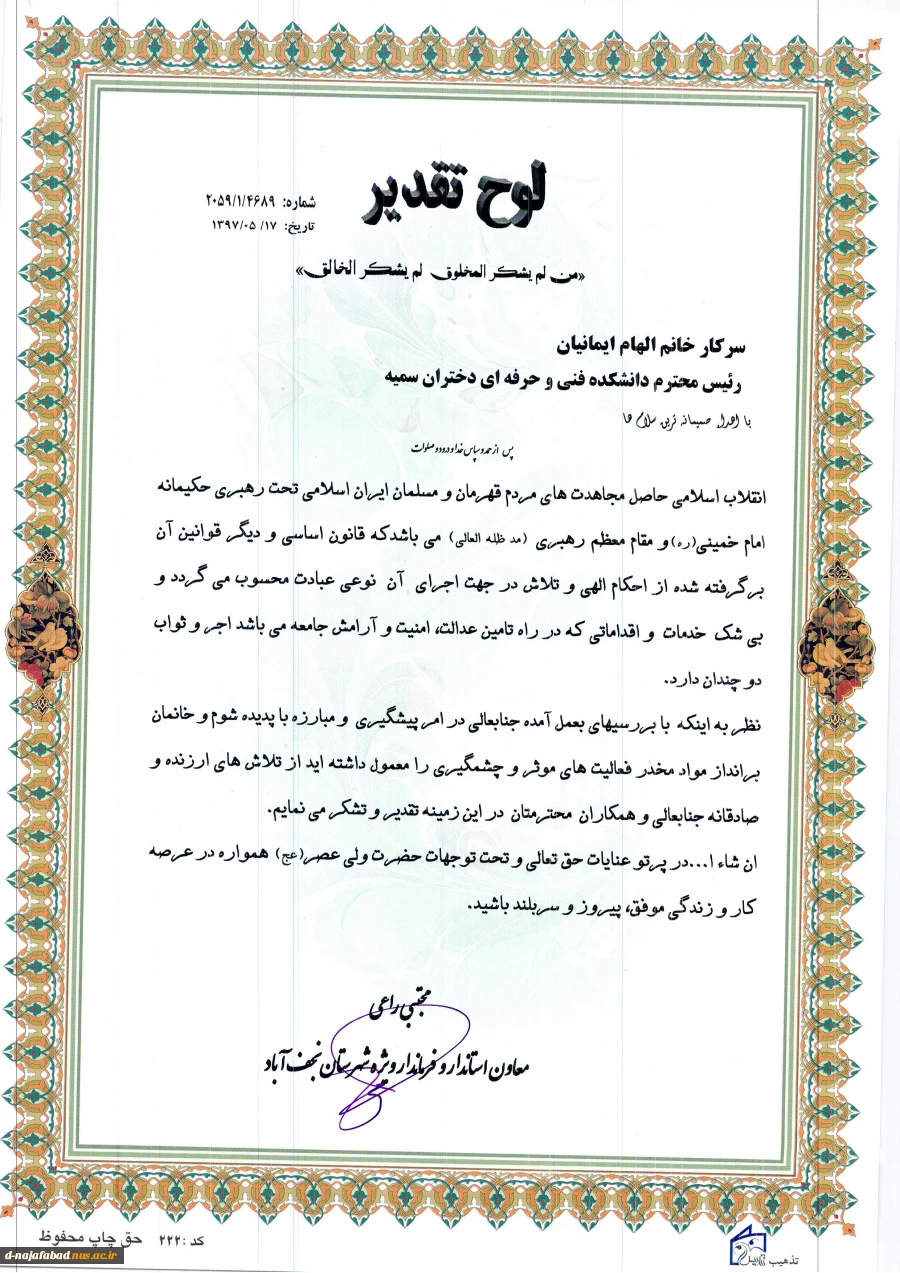 لوح تقدیر
شماره: ۲۰۵۹/۱/۴۶۸۹
تاریخ: ۱۷/ ۱۳۹۷/۰۵
«من لم یشکر المخلوق لم یشکر الخالق»
سرکار خانم الهام ایمانیان
رئیس محترم دانشکده فنی و حرفه ای دختران سمیه
با اهداء صمیمانه ترین سلام ها
پس از حمد و سپاس خدا و درود و صلوات
انقلاب اسلامی حاصل مجاهدت های مردم قهرمان و مسلمان ایران اسلامی تحت رهبری حکیمانه
امام خمینی(ره)و مقام معظم رهبری (مد ظله العالی) می باشدکه قانون اساسی و دیگر قوانین آن
برگرفته شده از احکام الهی و تلاش در جهت اجرای آن نوعی عبادت محسوب می گردد و
بی شک خدمات و اقداماتی که در راه تامین عدالت، امنیت و آرامش جامعه می باشد اجر و ثواب
دو چندان دارد.
نظر به اینکه با بررسیهای بعمل آمده جنابعالی در امر پیشگیری و مبارزه با پدیده شوم و خانمان
برانداز مواد مخدر فعالیت های موثر و چشمگیری را معمول داشته اید از تلاش های ارزنده و
صادقانه جنابعالی و همکاران محترمتان در این زمینه تقدیر و تشکر می نمایم.
ان شاء ا...در پرتو عنایات حق تعالی و تحت توجهات حضرت ولی عصر(عج) همواره در عرصه
کار و زندگی موفق، پیروز و سربلند باشید.
مجتبی راعی
معاون استاندار و فرماندار ویژه شهرستان نجف آباد
کد :۲۲۲ حق چاپ محفوظ
تذهیب
d-najafabad.nus.ac.ir